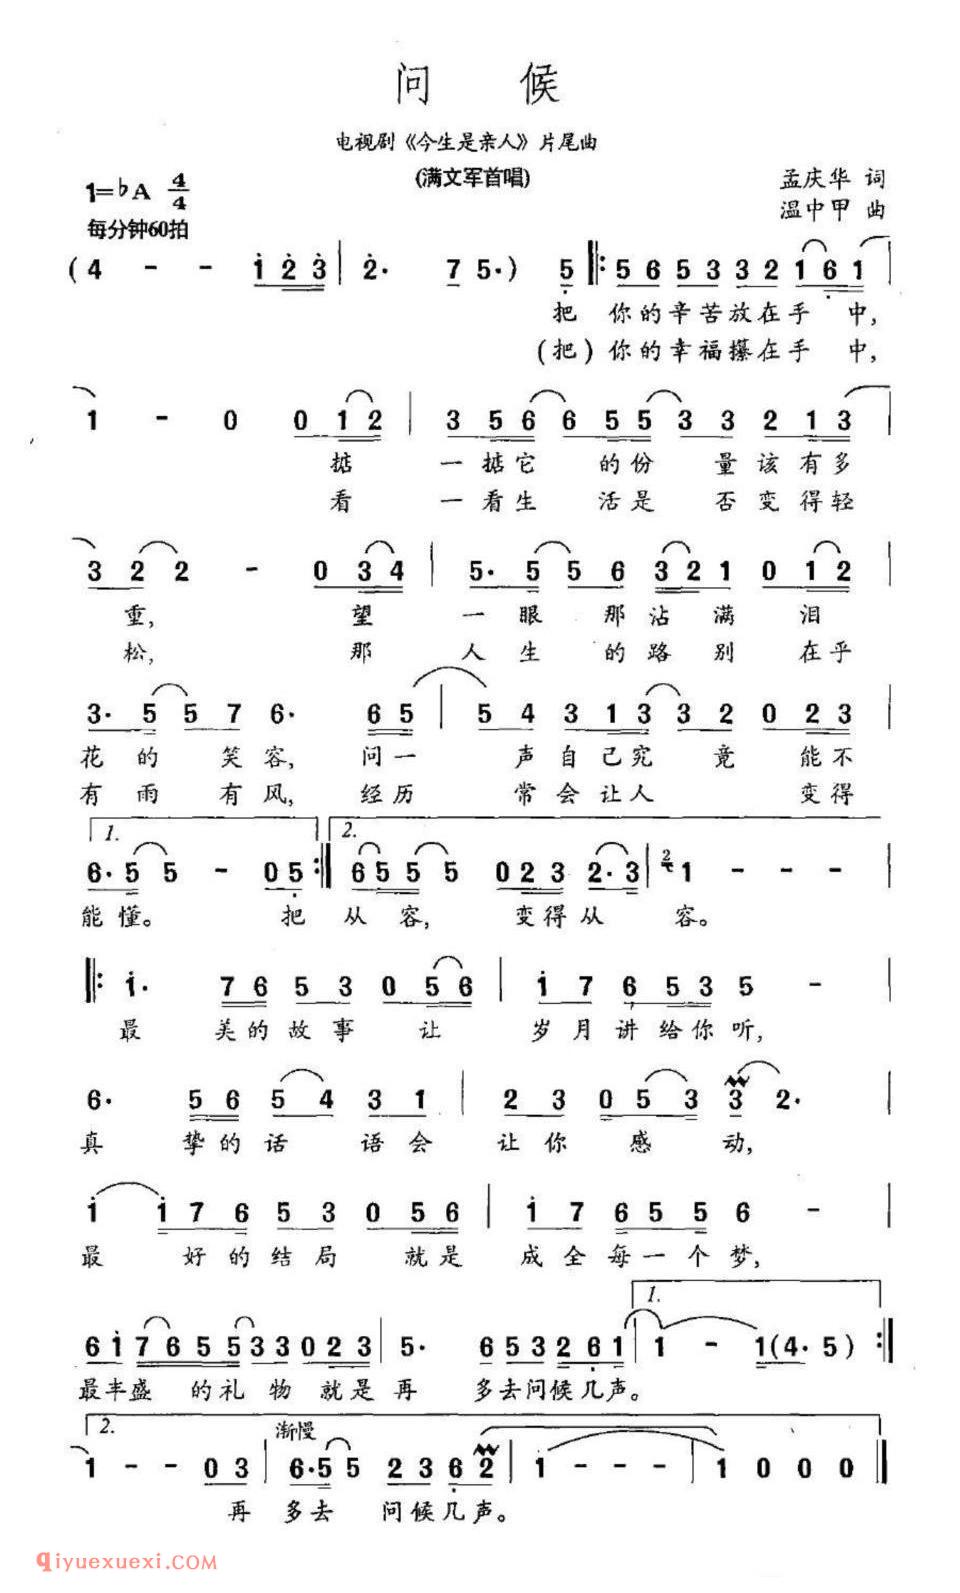 问 候
电视剧《今生是亲人》片尾曲
(满文军首唱)
1=♭A 4/4
孟庆华 词
每分钟60拍
温中甲 曲
(4 - - 1 2 3 | 2· 7 5·) 5 ‖: 5 6 5 3 3 2 1 6 1 |
把 你的辛苦放在手 中,
(把)你的幸福攥在手 中,
1 - 0 0 1 2 | 3 5 6 6 5 5 3 3 2 1 3 |
掂 一掂它 的份 量该有多
看 一看生 活是 否变得轻
3 2 2 - 0 3 4 | 5· 5 5 6 3 2 1 0 1 2 |
重, 望 一眼 那沾满 泪
松, 那 人生 的路别 在乎
3· 5 5 7 6· 6 5 | 5 4 3 1 3 3 2 0 2 3 |
花的 笑容, 问一 声自己究 竟 能不
有雨 有风, 经历 常会让人 变得
1. 2.
6· 5 5 - 0 5 :‖ 6 5 5 5 0 2 3 2· 3 | 2 1 - - - |
能懂。 把 从 容, 变得从 容。
‖: 1· 7 6 5 3 0 5 6 | 1 7 6 5 3 5 - |
最 美的故事 让 岁月讲给你听,
6· 5 6 5 4 3 1 | 2 3 0 5 3 3 2· |
真 挚的话 语会 让你 感 动,
1 1 7 6 5 3 0 5 6 | 1 7 6 5 5 6 - |
最 好的结局 就是 成全每一个梦,
1.
6 1 7 6 5 5 3 3 0 2 3 | 5· 6 5 3 2 6 1 | 1 - 1(4· 5) :‖
最丰盛 的礼 物 就是再 多去问候几声。
2. 渐慢
1 - - 0 3 | 6· 5 5 2 3 6 2 | 1 - - - | 1 0 0 0 ‖
再 多去 问候几声。
qiyuexuexi.com